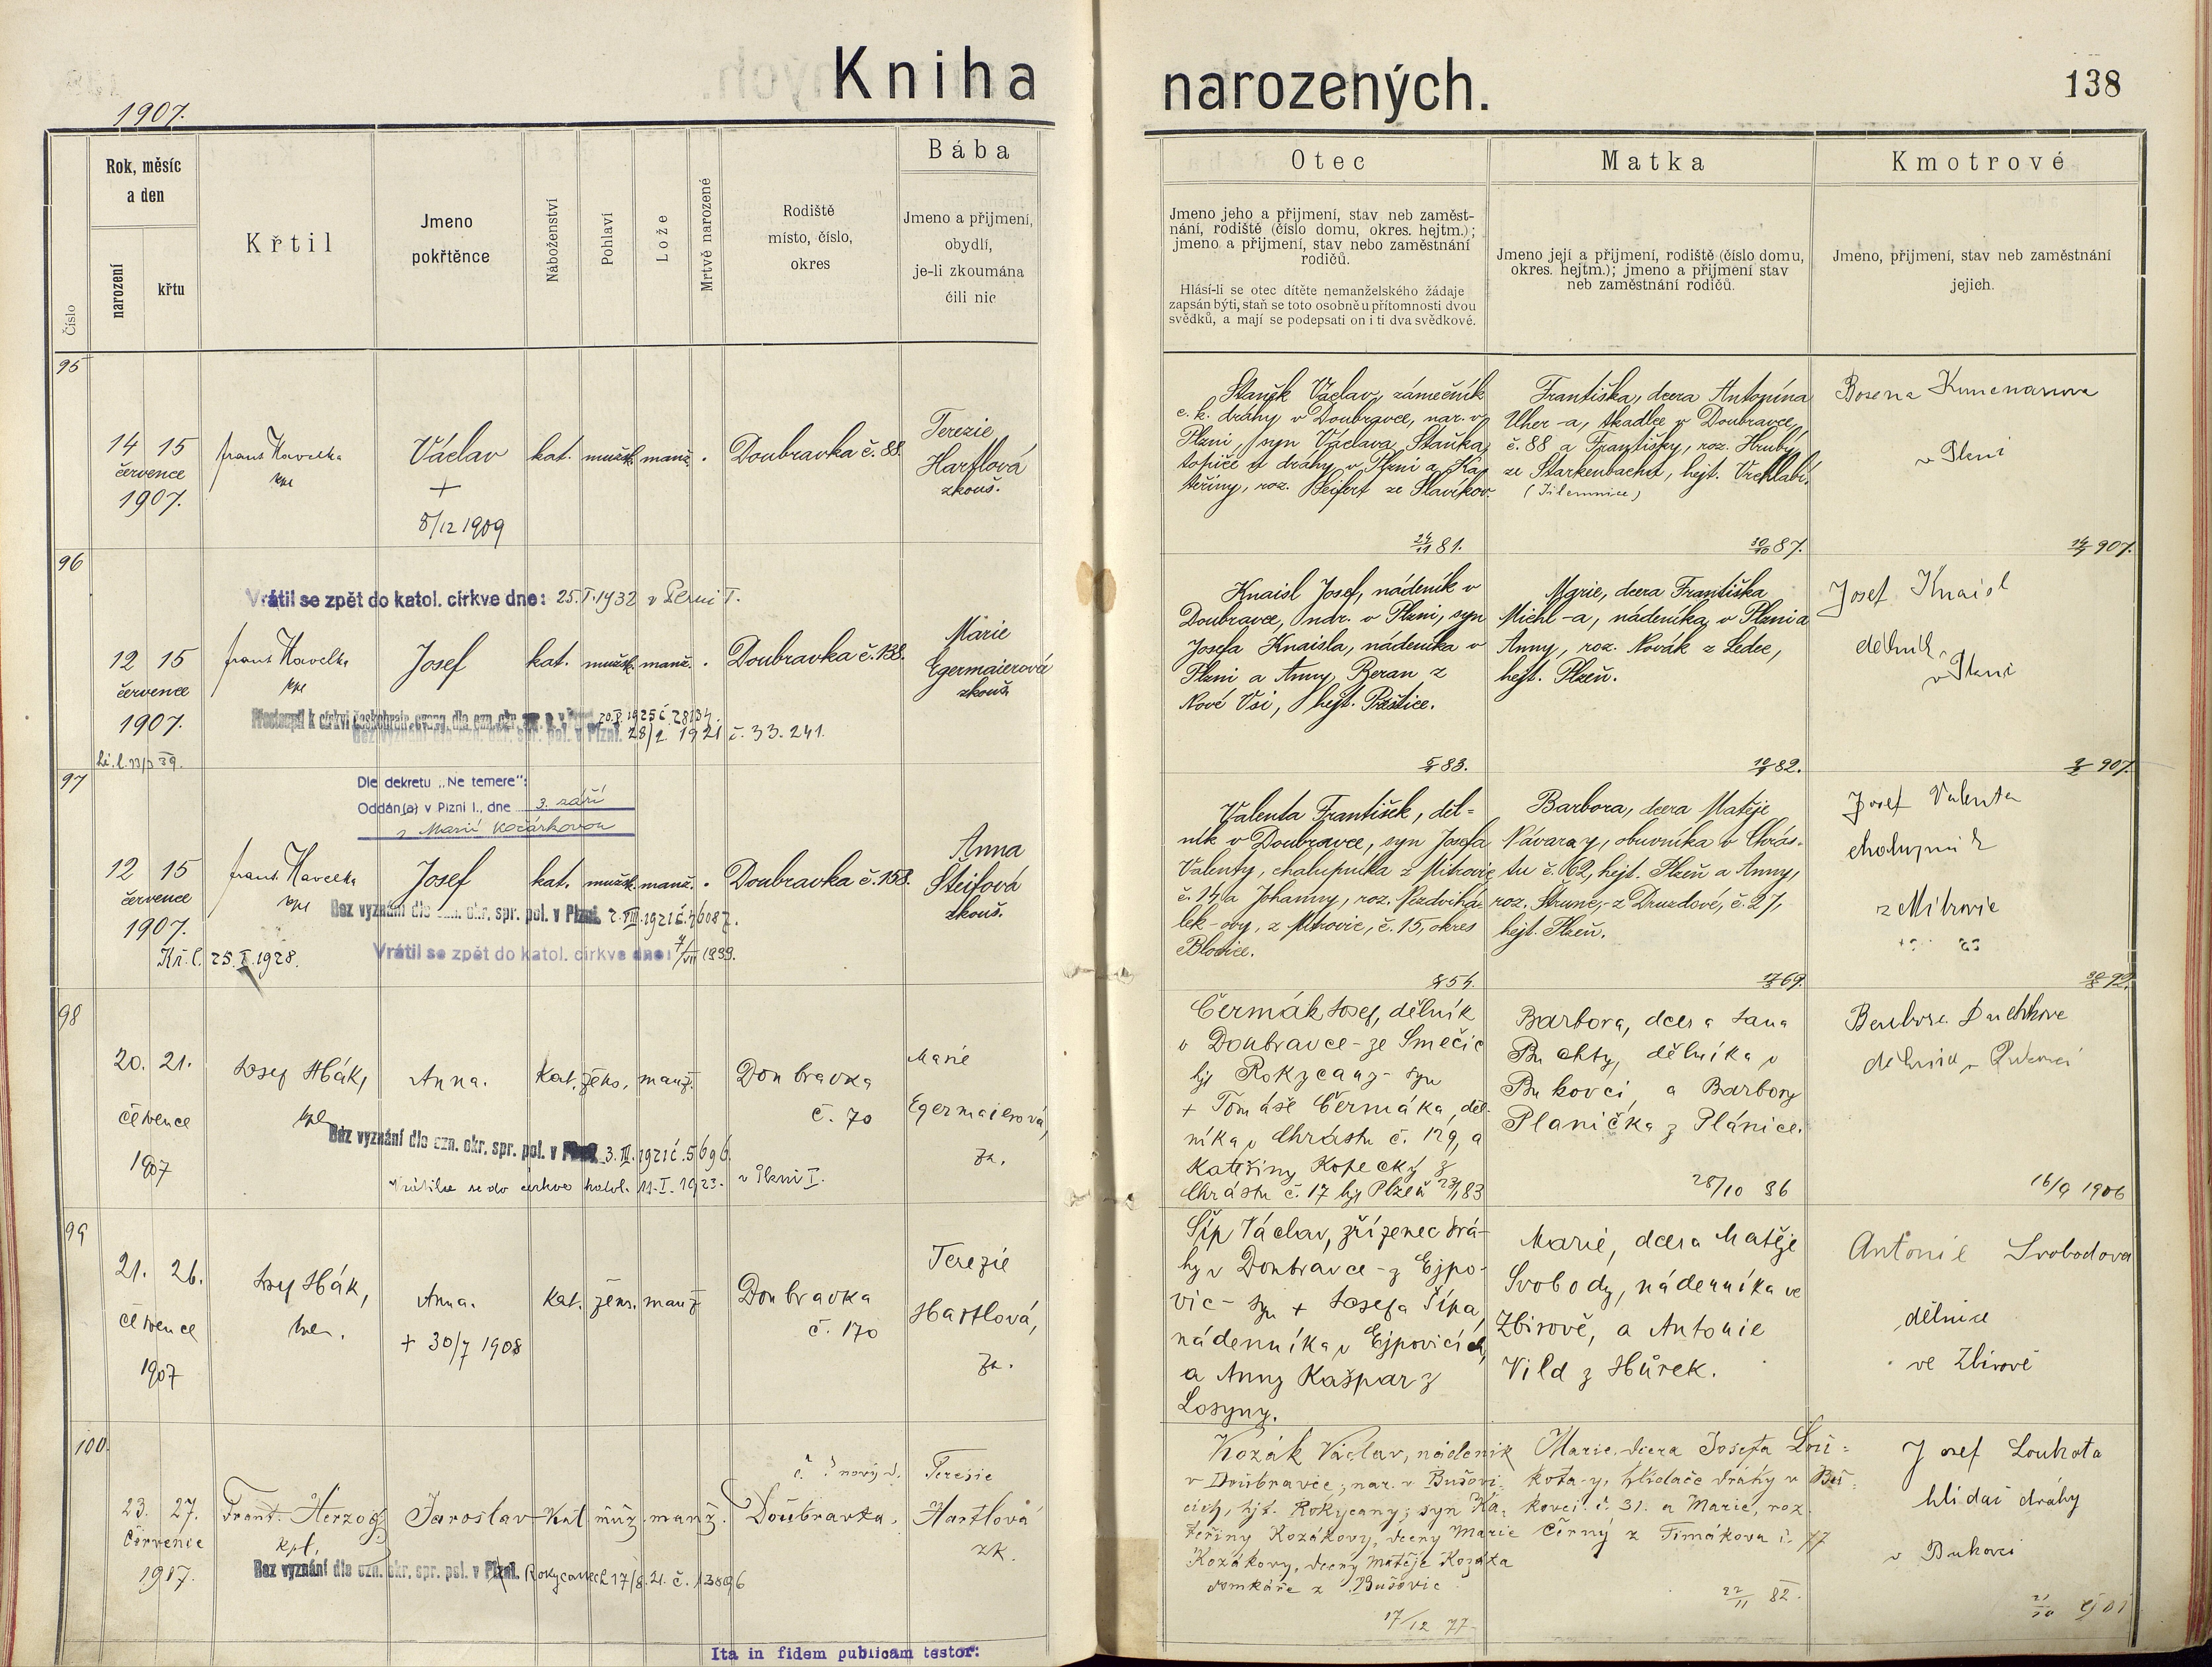 Kniha narozených.
138
1907.
Číslo
Rok, měsíc
a den
narození
křtu
Křtil
Jmeno
pokřtěnce
Náboženství
Pohlaví
Lože
Mrtvě narozené
Rodiště
místo, číslo,
okres
Bába
Jmeno a přijmení,
obydlí,
je-li zkoumána
čili nic
Otec
Jmeno jeho a přijmení, stav neb zaměst-
nání, rodiště (číslo domu, okres. hejtm.);
jmeno a přijmení, stav nebo zaměstnání
rodičů.
Hlásí-li se otec dítěte nemanželského žádaje
zapsán býti, staň se toto osobně u přítomnosti dvou
svědků, a mají se podepsati on i ti dva svědkové.
Matka
Jmeno její a přijmení, rodiště (číslo domu,
okres. hejtm.); jmeno a přijmení stav
neb zaměstnání rodičů.
Kmotrové
Jmeno, přijmení, stav neb zaměstnání
jejich.
95
14 15
července
1907.
Frant Havelka
kpl
Václav
+
8/12 1909
kat. mužsk. manž.
Doubravka č. 88.
Terezie
Hartlová
zkouš.
Staňk Václav, zámečník
c. k. dráhy v Doubravce, nar. v
Plzni, syn Václava Staňka,
topiče u dráhy v Plzni a Ka-
teřiny, roz. Seifert ze Slavíkov.
24/11 81.
Františka, dcera Antonína
Uher-a, tkadlce v Doubravce,
č. 88 a Františky, roz. Hrubý
ze Starkenbachu, hejt. Vrchlabí.
(Jilemnice)
30/10 87.
v Plzni
907.
96
Vrátil se zpět do katol. církve dne: 25.I.1932 v Plzni I.
12 15
července
1907.
Frant Havelka
kpl
Josef
kat. mužsk. manž.
Doubravka č. 138.
Marie
Egermaierová
zkouš.
20.V.1925 č. 28134.
28/2 1921 č. 33.241.
Knaisl Josef, nádeník v
Doubravce, nar. v Plzni, syn
Josefa Knaisla, nádeníka v
Plzni a Anny Beran z
Nové Vsi, hejt. Přeštice.
83.
Marie, dcera Františka
Michl-a, nádeníka v Plzni a
Anny, roz. Novák z Ledec,
hejt. Plzeň.
82.
Josef Knaisl
dělník
v Plzni
907.
97
Dle dekretu „Ne temere":
Oddán(a) v Plzni I., dne 3. září
s Marií Kočárkovou
12 15
července
1907.
Kř. l. 25.I.1928.
Frant. Havelka
kpl
Josef
kat. mužsk. manž.
Doubravka č. 158.
Anna
Šteifová
zkouš.
Bez vyznání dle ozn. okr. spr. pol. v Plzni.
Vrátil se zpět do katol. církve dne: 7/VII 1939.
Valenta František, děl-
ník v Doubravce, syn Josefa
Valenty, chalupníka z Mitrovic
č. 14, a Johanny, roz.
lek-ovy, z Mitrovic, č. 15, okres
Blovice.
54.
Barbora, dcera Matěje
Návara-y, obuvníka v Chrás-
tu č. 62, hejt. Plzeň a Anny,
roz. Strune,- z Druzdové, č. 27,
hejt. Plzeň.
69.
Josef Valenta
chalupník
z Mitrovic
98
20. 21.
července
1907
Josef Hák,
kpl.
Anna.
Kat. žens. manž.
Doubravka
č. 70
Marie
Egermaierová,
zk.
Bez vyznání dle ozn. okr. spr. pol. v Plzni 3. III. 1921 č. 5696.
Vrátila se do církve katol. 11.I.1923. v Plzni I.
Čermák Josef, dělník
v Doubravce - ze Smečic
hjt Rokycany - syn
+ Tomáše Čermáka, děl-
níka v Chrástu č. 129, a
Kateřiny Kopecký z
Chrástu č. 17 hjt Plzeň
83
Barbora, dcera Jana
Buchty, dělníka v
Bukovci, a Barbory
Planička z Plánice.
28/10 86
16/9 1906
99
21. 26.
července
1907
Josef Hák,
kpl.
Anna.
+ 30/7 1908
Kat. žens. manž
Doubravka
č. 170
Terezie
Hartlová,
zk.
Šíp Václav, zřízenec drá-
hy v Doubravce - z Ejpo-
vic - syn + Josefa Šípa,
nádenníka v Ejpovicích,
a Anny Kašpar z
Losyny.
Marie, dcera Matěje
Svobody, nádenníka ve
Zbirově, a Antonie
Vild z Hůrek.
Antonie Svobodova
dělnice
ve Zbirově
100.
23. 27.
Července
1907.
Frant. Herzog
kpl.
Jaroslav
Kat. muž. manž.
nový d.
Doubravka.
Terezie
Hartlová
zk.
Bez vyznání dle ozn. okr. spr. pol. v Plzni. Rokycanech 17/8. 21. č. 13896
Kozák Václav, nádeník
v Doubravce; nar. v Bušovi-
cích, hjt. Rokycany; syn Ka-
teřiny Kozákovy, dcery Marie
Kozákovy, dcery Matěje Kozáka
domkáře z Bušovic
17/12 77.
Marie, dcera Josefa Lou-
kota-y, hlídače dráhy v Bu-
kovci č. 31. a Marie, roz.
Černý z Timákova č. 77
22/11 82.
Josef Loukota
hlídač dráhy
v Bukovci
Ita in fidem publicam testor: